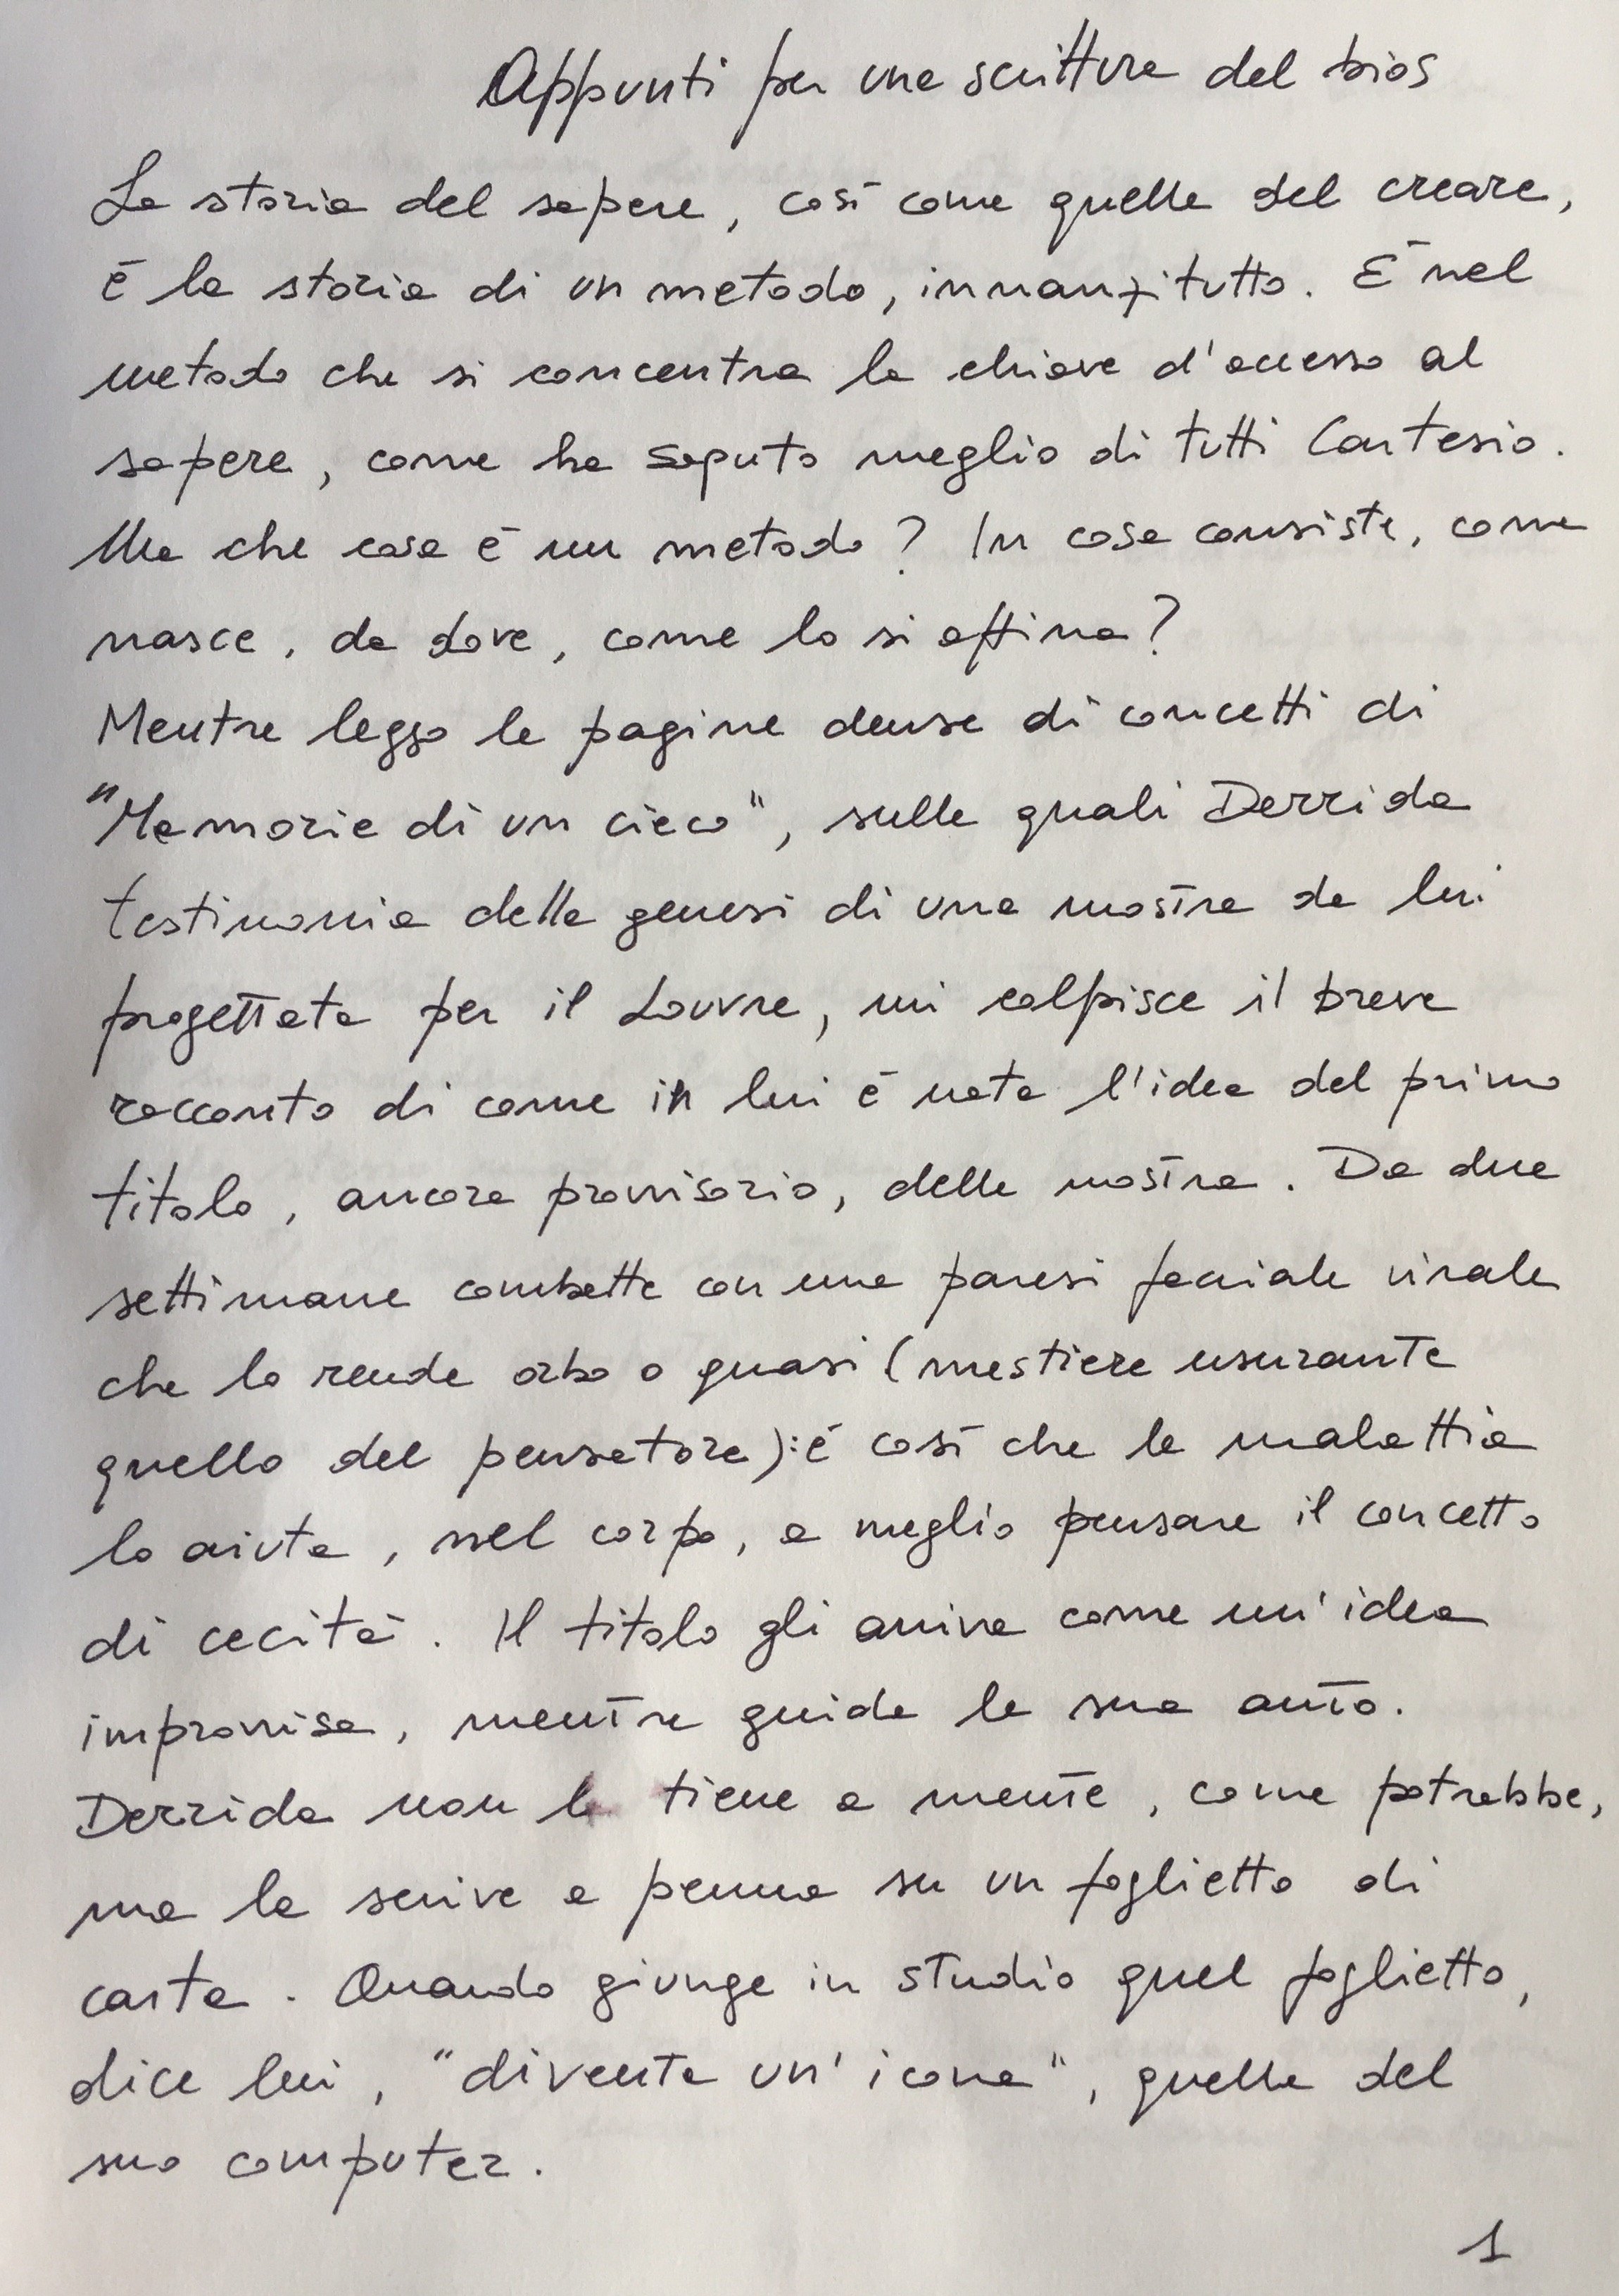 Appunti per una scrittura del bios
La storia del sapere, così come quella del creare,
è la storia di un metodo, innanzitutto. È nel
metodo che si concentra la chiave d'accesso al
sapere, come ha saputo meglio di tutti Cartesio.
Ma che cosa è un metodo? In cosa consiste, come
nasce, da dove, come lo si affina?
Mentre leggo le pagine dense di concetti di
"Memorie di un cieco", sulle quali Derrida
testimonia della genesi di una mostra da lui
progettata per il Louvre, mi colpisce il breve
racconto di come in lui è nata l'idea del primo
titolo, ancora provvisorio, della mostra. Da due
settimane combatte con una paresi facciale virale
che lo rende orbo o quasi (mestiere usurante
quello del pensatore): è così che la malattia
lo aiuta, nel corpo, a meglio pensare il concetto
di cecità. Il titolo gli arriva come un'idea
improvvisa, mentre guida la sua auto.
Derrida non la tiene a mente, come potrebbe,
ma la scrive a penna su un foglietto di
carta. Quando giunge in studio quel foglietto,
dice lui, "diventa un'icona", quella del
suo computer.
1